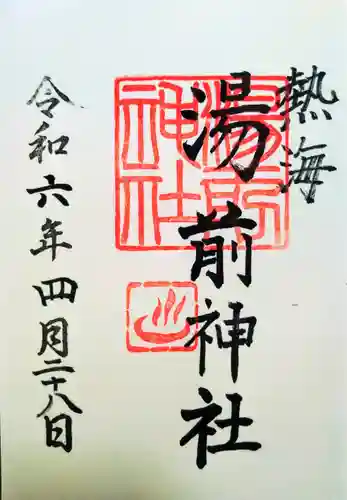 熱海
湯前神社
令和六年四月二十八日
湯前
神社